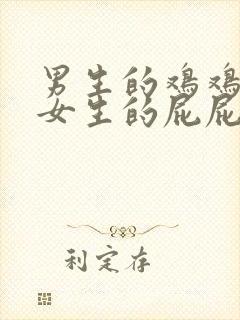 男生的鸡鸡
女生的屁屁
利定存